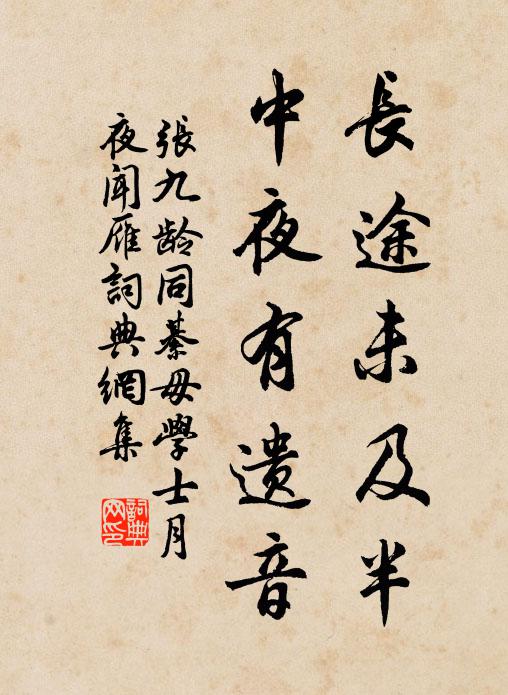 長途未及半
中夜有遺音
張九龄同綦毋學士月
夜闻雁詞典網集
詞典
网印